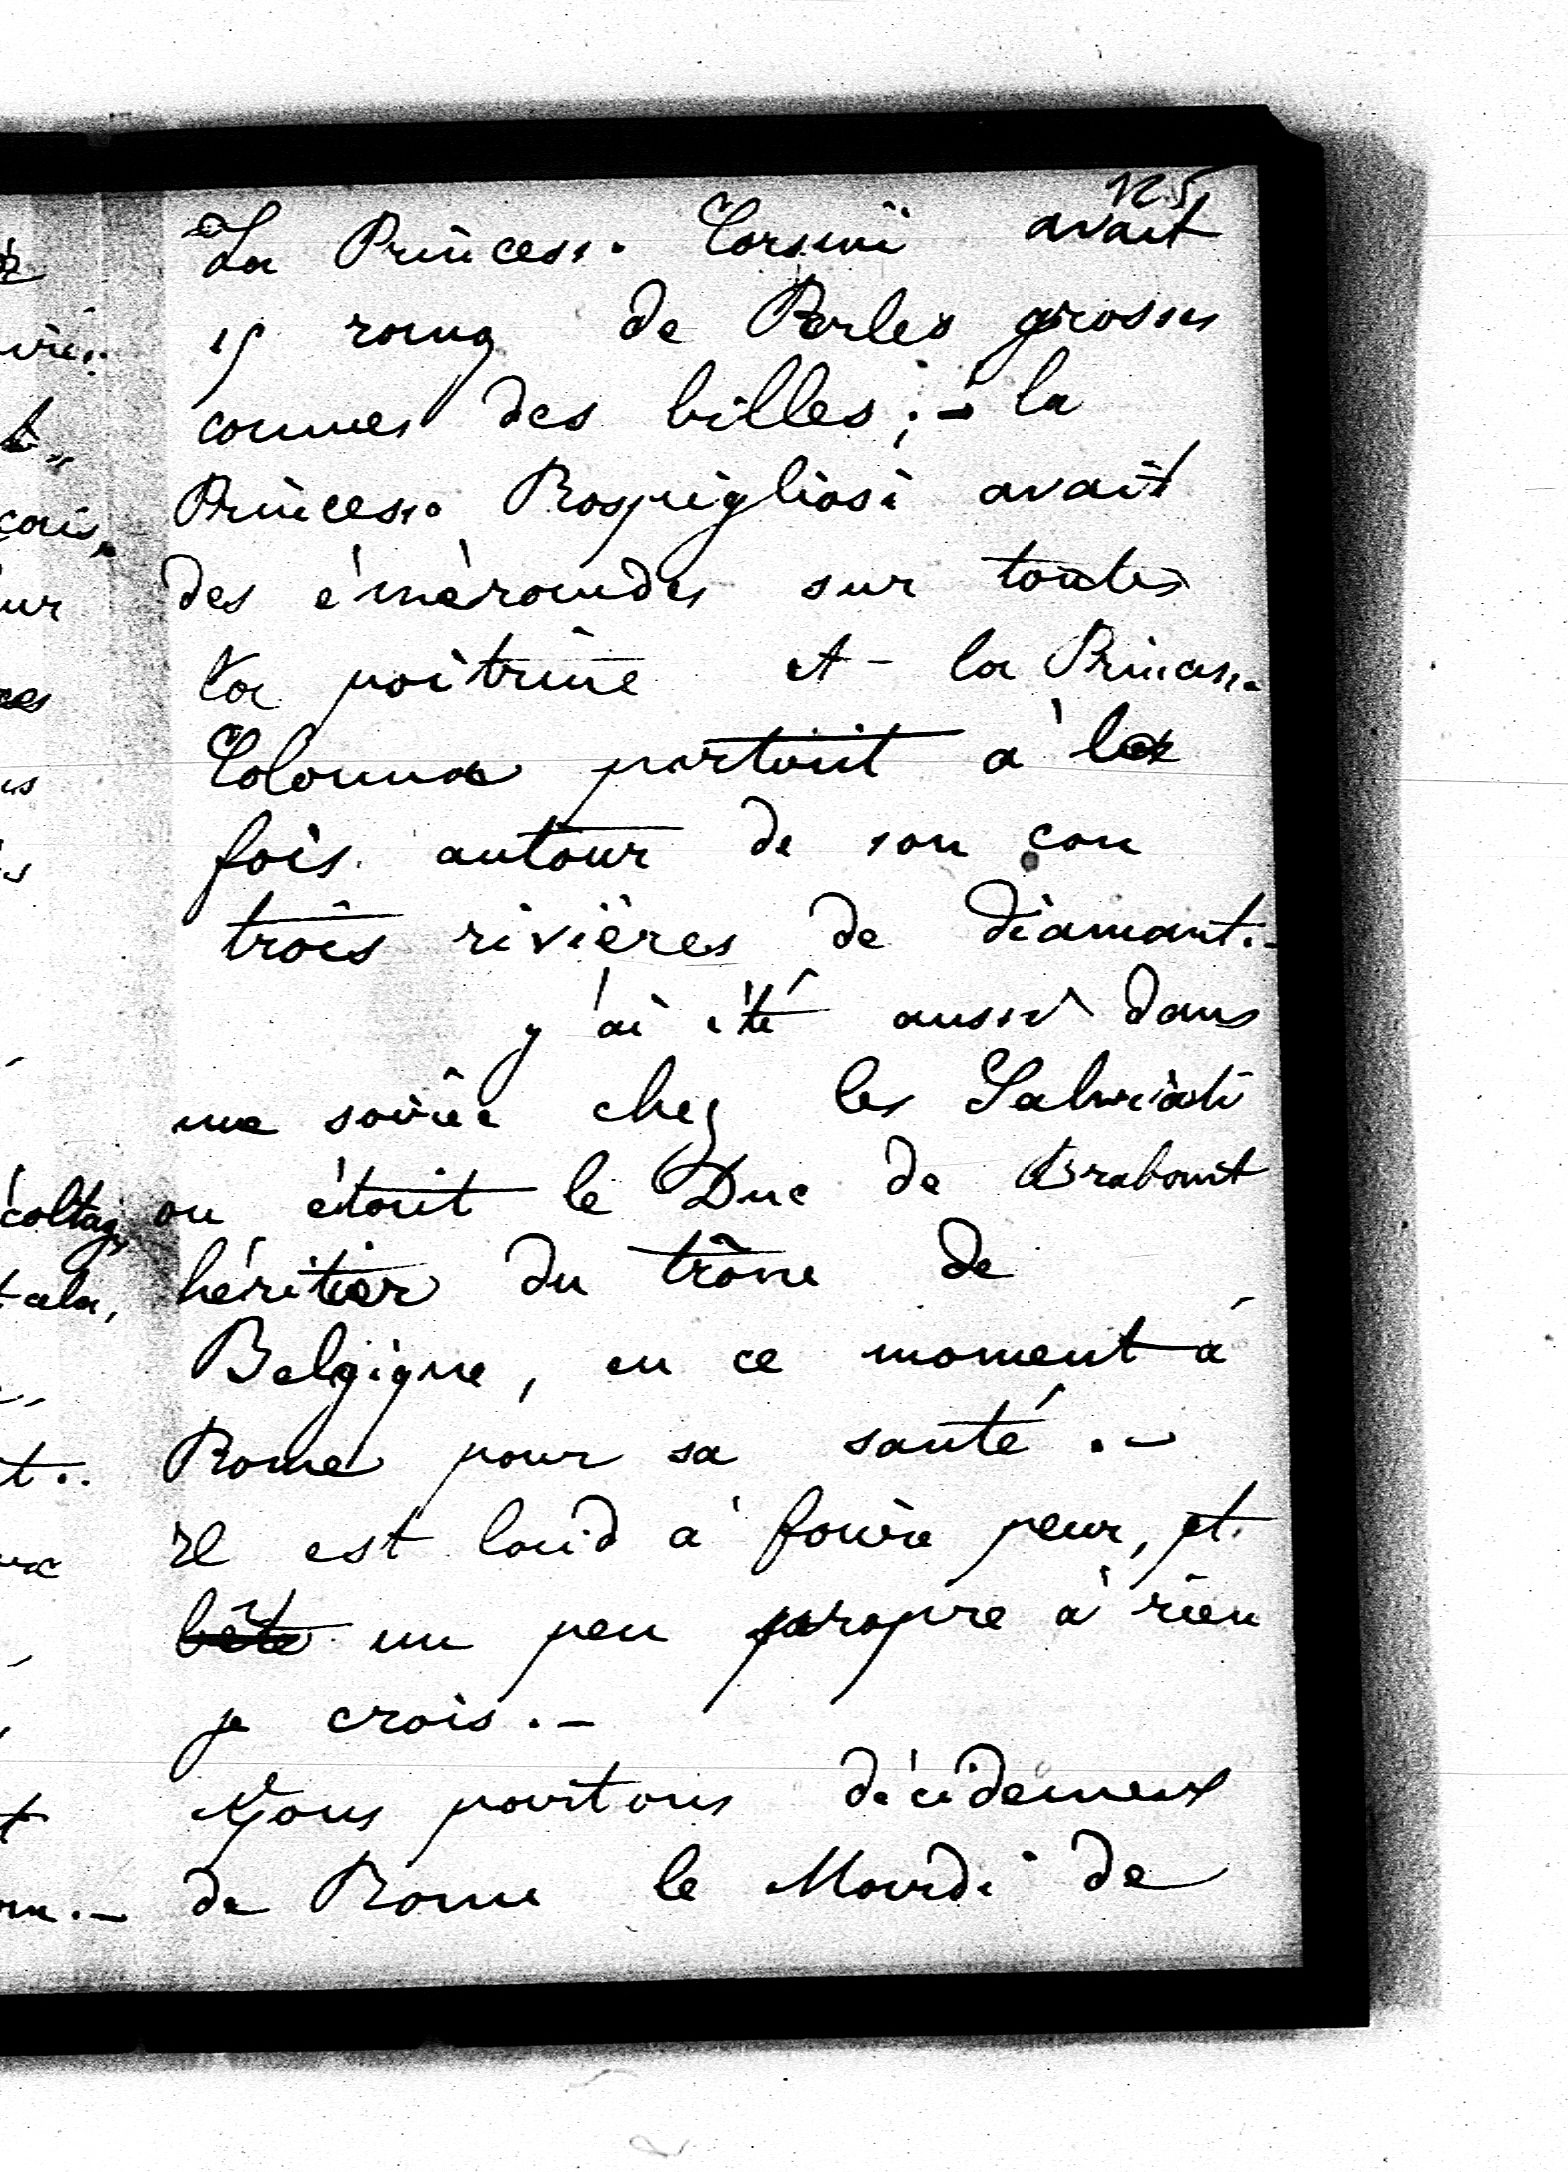 125
La Princesse Corsini avait
15 rang de Perles grosses
comme des billes ; - la
Princesse Rospigliosi avait
des éméraudes sur toutes
la poitrine et - la Princesse
Colonna portait à la
fois autour de son cou
trois rivières de diamant. -
j'ai été aussi dans
une soirée chez les Salviati
ou était le Duc de Brabant
héritier du trône de
Belgique, en ce moment à
Rome pour sa santé. -
Il est laid à faire peur, et
bête un peu propre à rien
je crois. -
Nous partons décidement
de Rome le Mardi de